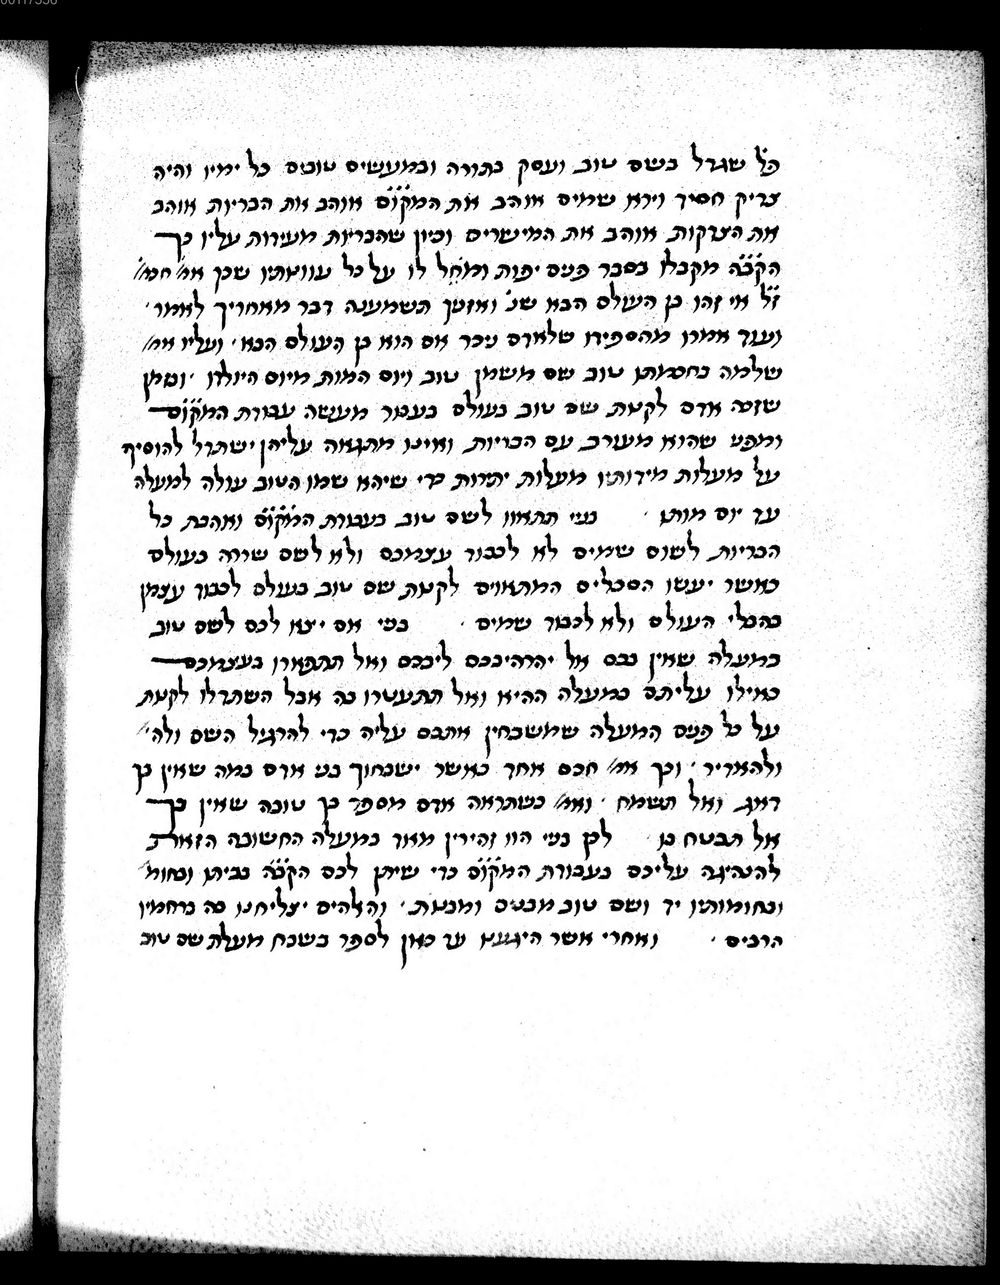 כל שגדל בשם טוב ועסק בתורה ובמעשים טובים כל ימיו והיה
צדיק חסיד וירא שמים אוהב את המקום אוהב את הבריות אוהב
את הצדקות אוהב את המישרים וכיון שהבריות מעידות עליו כך
הקבה מקבלו בסבר פנים יפות ומוחל לו על כל עוונותיו שכן אמ' חכמ'
ז"ל אי זהו בן העולם הבא שנ' ואזניך תשמענה דבר מאחריך לאמר
ועוד אמרו מהספידו שלאדם ניכר אם הוא בן העולם הבא ועליו אמ'
שלמה בחכמתו טוב שם משמן טוב ויום המות מיום היולדו
שזכה אדם לקנות שם טוב בעולם בעבור מעשה עבודת המקום
ומפני שהוא מעורב עם הבריות ואינו מתגאה עליהן ישתדל להוסיף
על מעלות מידותיו מעלות יתירות כדי שיהא שמו הטוב עולה למעלה
עד יום מותו בני תתאוו לשם טוב בעבודת המקום ואהבת כל
הבריות לשום שמים לא לכבוד עצמכם ולא לשם שררה בעולם
כאשר יעשו הסכלים המתאוים לקנות שם טוב בעולם לכבוד עצמן
בהבלי העולם ולא לכבוד שמים בני אם ייצא לכם לשם טוב
במעלה שאין בכם אל יהרהיבכם ליבכם ואל תתפארו בעצמכם
כאילו עליתם במעלה ההיא ואל תתעטרו בה אבל השתדלו לקנות
על כל פנים המעלה שמשבחין אתכם עליה כדי להרגיל השם ולה'
ולהאדיר וכך אמ' חכם אחד כאשר ישבחוך בני אדם במה שאין בך
דאג ואל תשמח ואמ' כשתראה אדם מספר בך טובה שאין בך
אל תבטח בו לכן בני הוו זהירין מאוד במעלה החשובה הזאת
להנהיגה עליכם בעבודת המקום כדי שיתן לכם הקבה בביתו ובחומ'
ובחומותיו יד ושם טוב מבנים ומבנות והאלהים יצליחנו בה ברחמיו
הרבים ואחרי אשר היגענו עד כאן לספר בשבח מעלת שם טוב